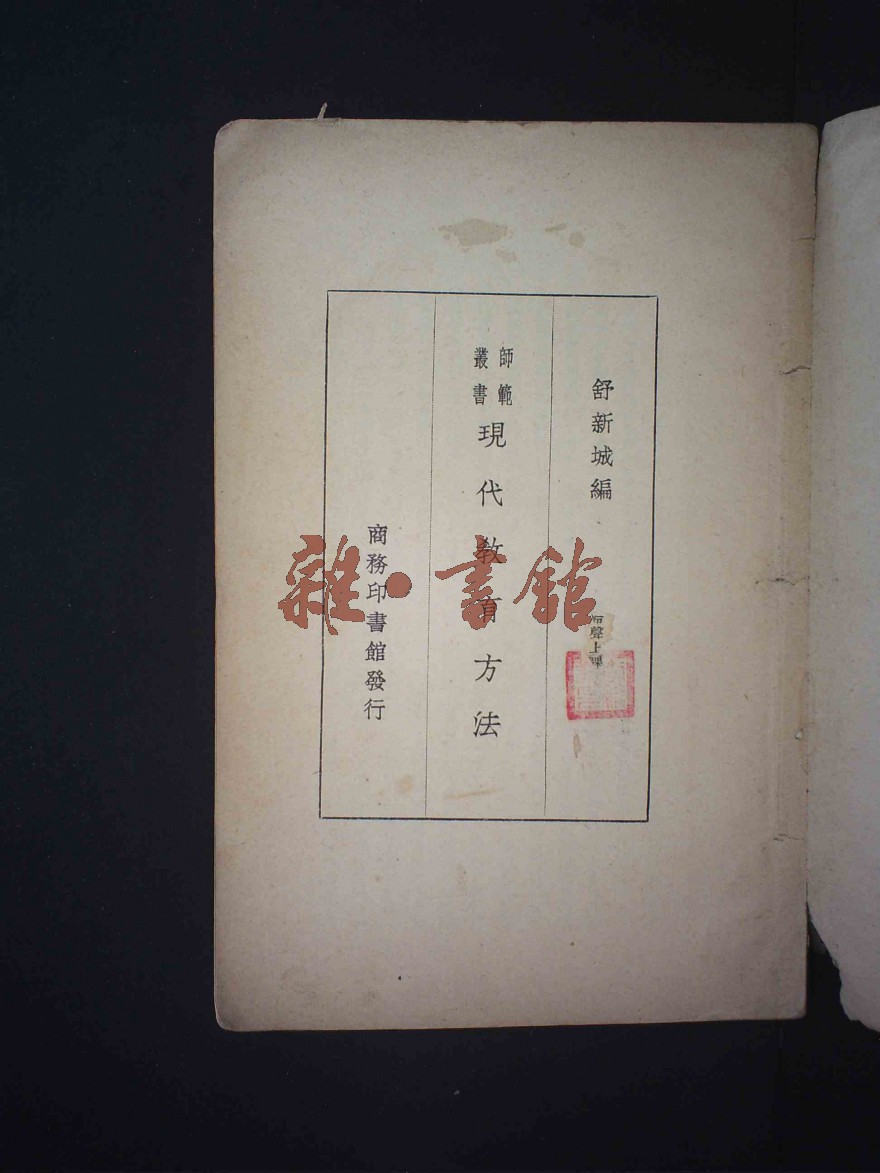 舒新城編
師範
叢書
現代教育方法
商務印書館發行
雜·書館